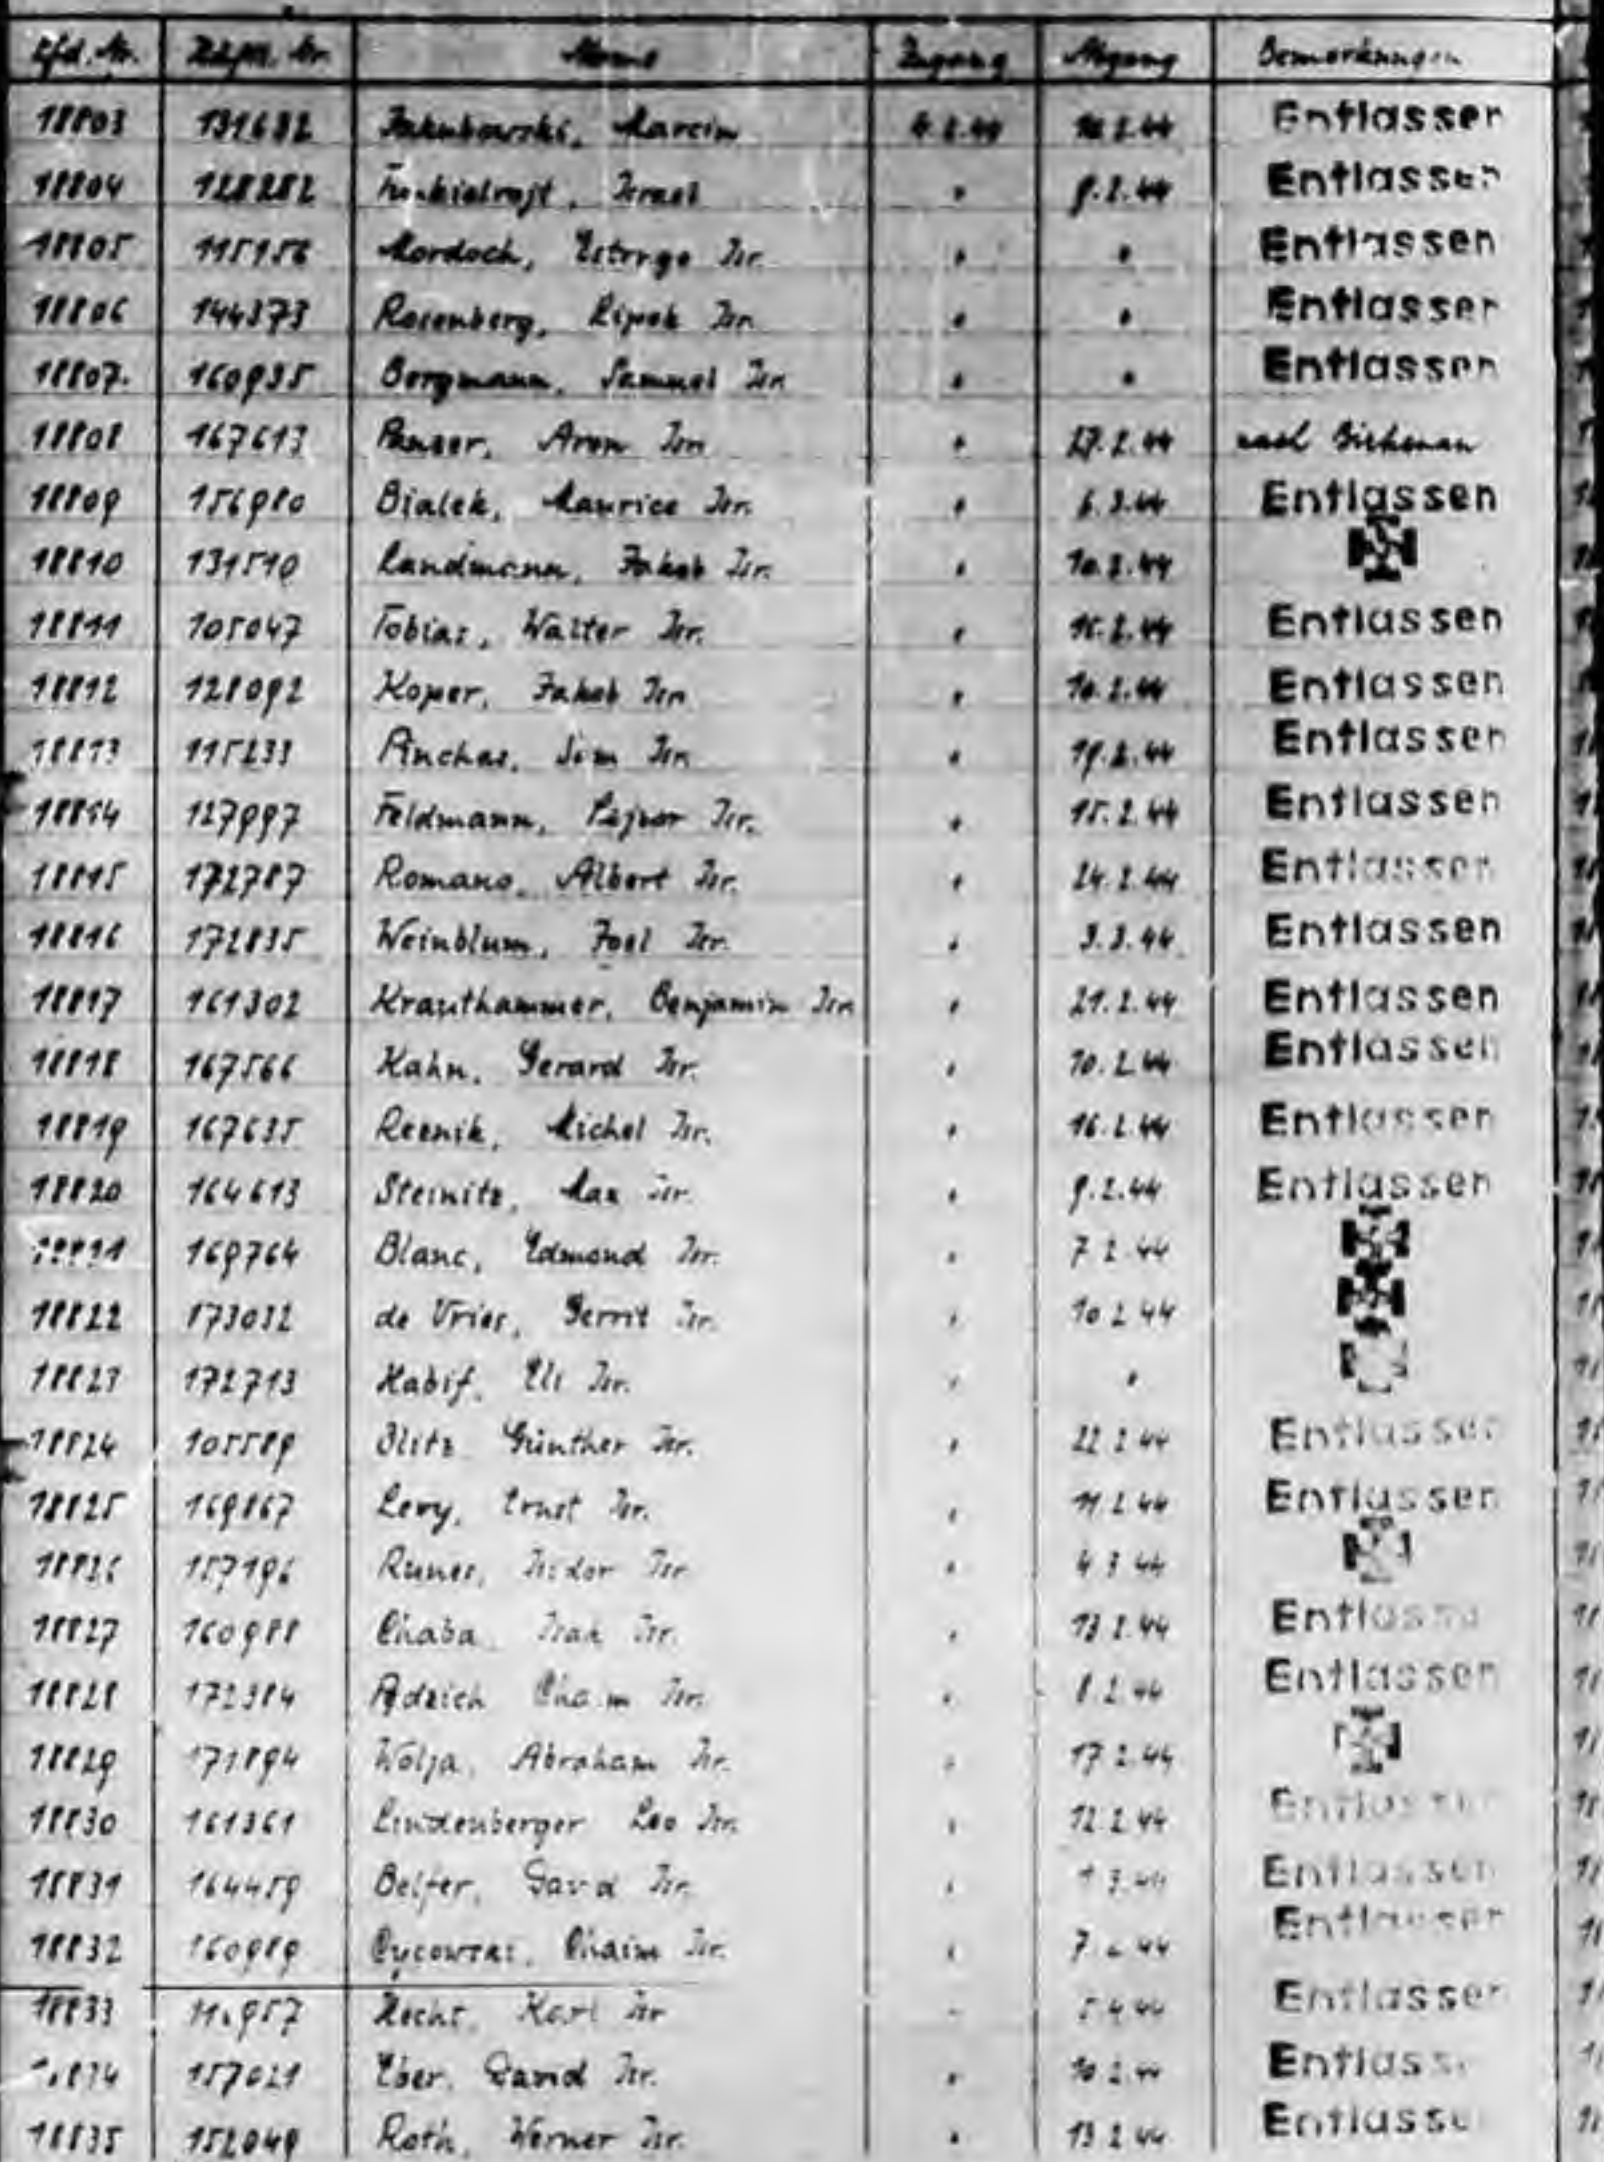 Lfd. Nr. Häftl. Nr. Name Zugang Abgang Bemerkungen
18803 131632 Jakubowski, Marcin 6.2.44 10.2.44 Entlassen
18804 128282 Israel " 9.2.44 Entlassen
18805 115156 Mordoch, Estrygo Isr. " " Entlassen
18806 144373 Rosenberg, Lipek Isr. " " Entlassen
18807. 160935 Bergmann, Samuel Isr. " " Entlassen
18808 167613 Panzer, Aron Isr. " 27.2.44 nach Birkenau
18809 156980 Bialek, Maurice Isr. " 6.3.44 Entlassen
18810 131510 Landmann, Jakob Isr. " 10.2.44
18811 105047 Tobias, Walter Isr. " 16.2.44 Entlassen
18812 128092 Koper, Jakob Isr. " 10.2.44 Entlassen
18813 115233 Pinchas, Sim Isr. " 19.2.44 Entlassen
18814 127997 Feldmann, Lejser Isr. " 15.2.44 Entlassen
18815 172787 Romano, Albert Isr. " 24.2.44 Entlassen
18816 172835 Weinblum, Joel Isr. " 3.3.44 Entlassen
18817 161302 Krauthammer, Benjamin Isr. " 21.2.44 Entlassen
18818 167566 Kahn, Gerard Isr. " 10.2.44 Entlassen
18819 167635 Reznik, Michel Isr. " 16.2.44 Entlassen
18820 164613 Steinitz, Max Isr. " 9.2.44 Entlassen
18821 169764 Blanc, Edmond Isr. " 7.2.44
18822 173032 de Vries, Gerrit Isr. " 10.2.44
18823 172713 Habif, Eli Isr. " "
18824 105589 Blitz Günther Isr. " 22.2.44 Entlassen
18825 169867 Levy, Ernst Isr. " 11.2.44 Entlassen
18826 157196 Runes, Isidor Isr. " 4.3.44
18827 160988 Chaba, Isak Isr. " 13.2.44 Entlassen
18828 172384 Adzich Chaim Isr. " 8.2.44 Entlassen
18829 171894 Wolja, Abraham Isr. " 17.2.44
18830 161361 Lindenberger Leo Isr. " 12.2.44 Entlassen
18831 164459 Belfer, David Isr. " 1.3.44 Entlassen
18832 160989 Chaim Isr. " 7.2.44 Entlassen
18833 Hecht, Karl Isr. " Entlassen
18834 157021 Eber, David Isr. " 10.2.44 Entlassen
18835 152049 Roth, Werner Isr. " 13.2.44 Entlassen